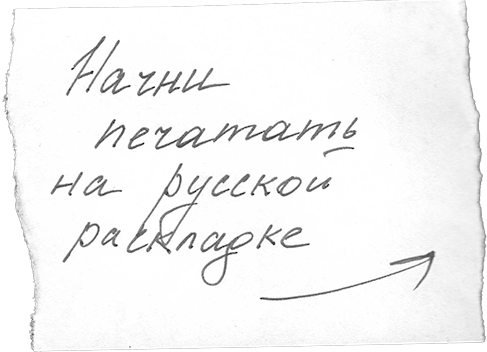 Начни
печатать
на русской
раскладке